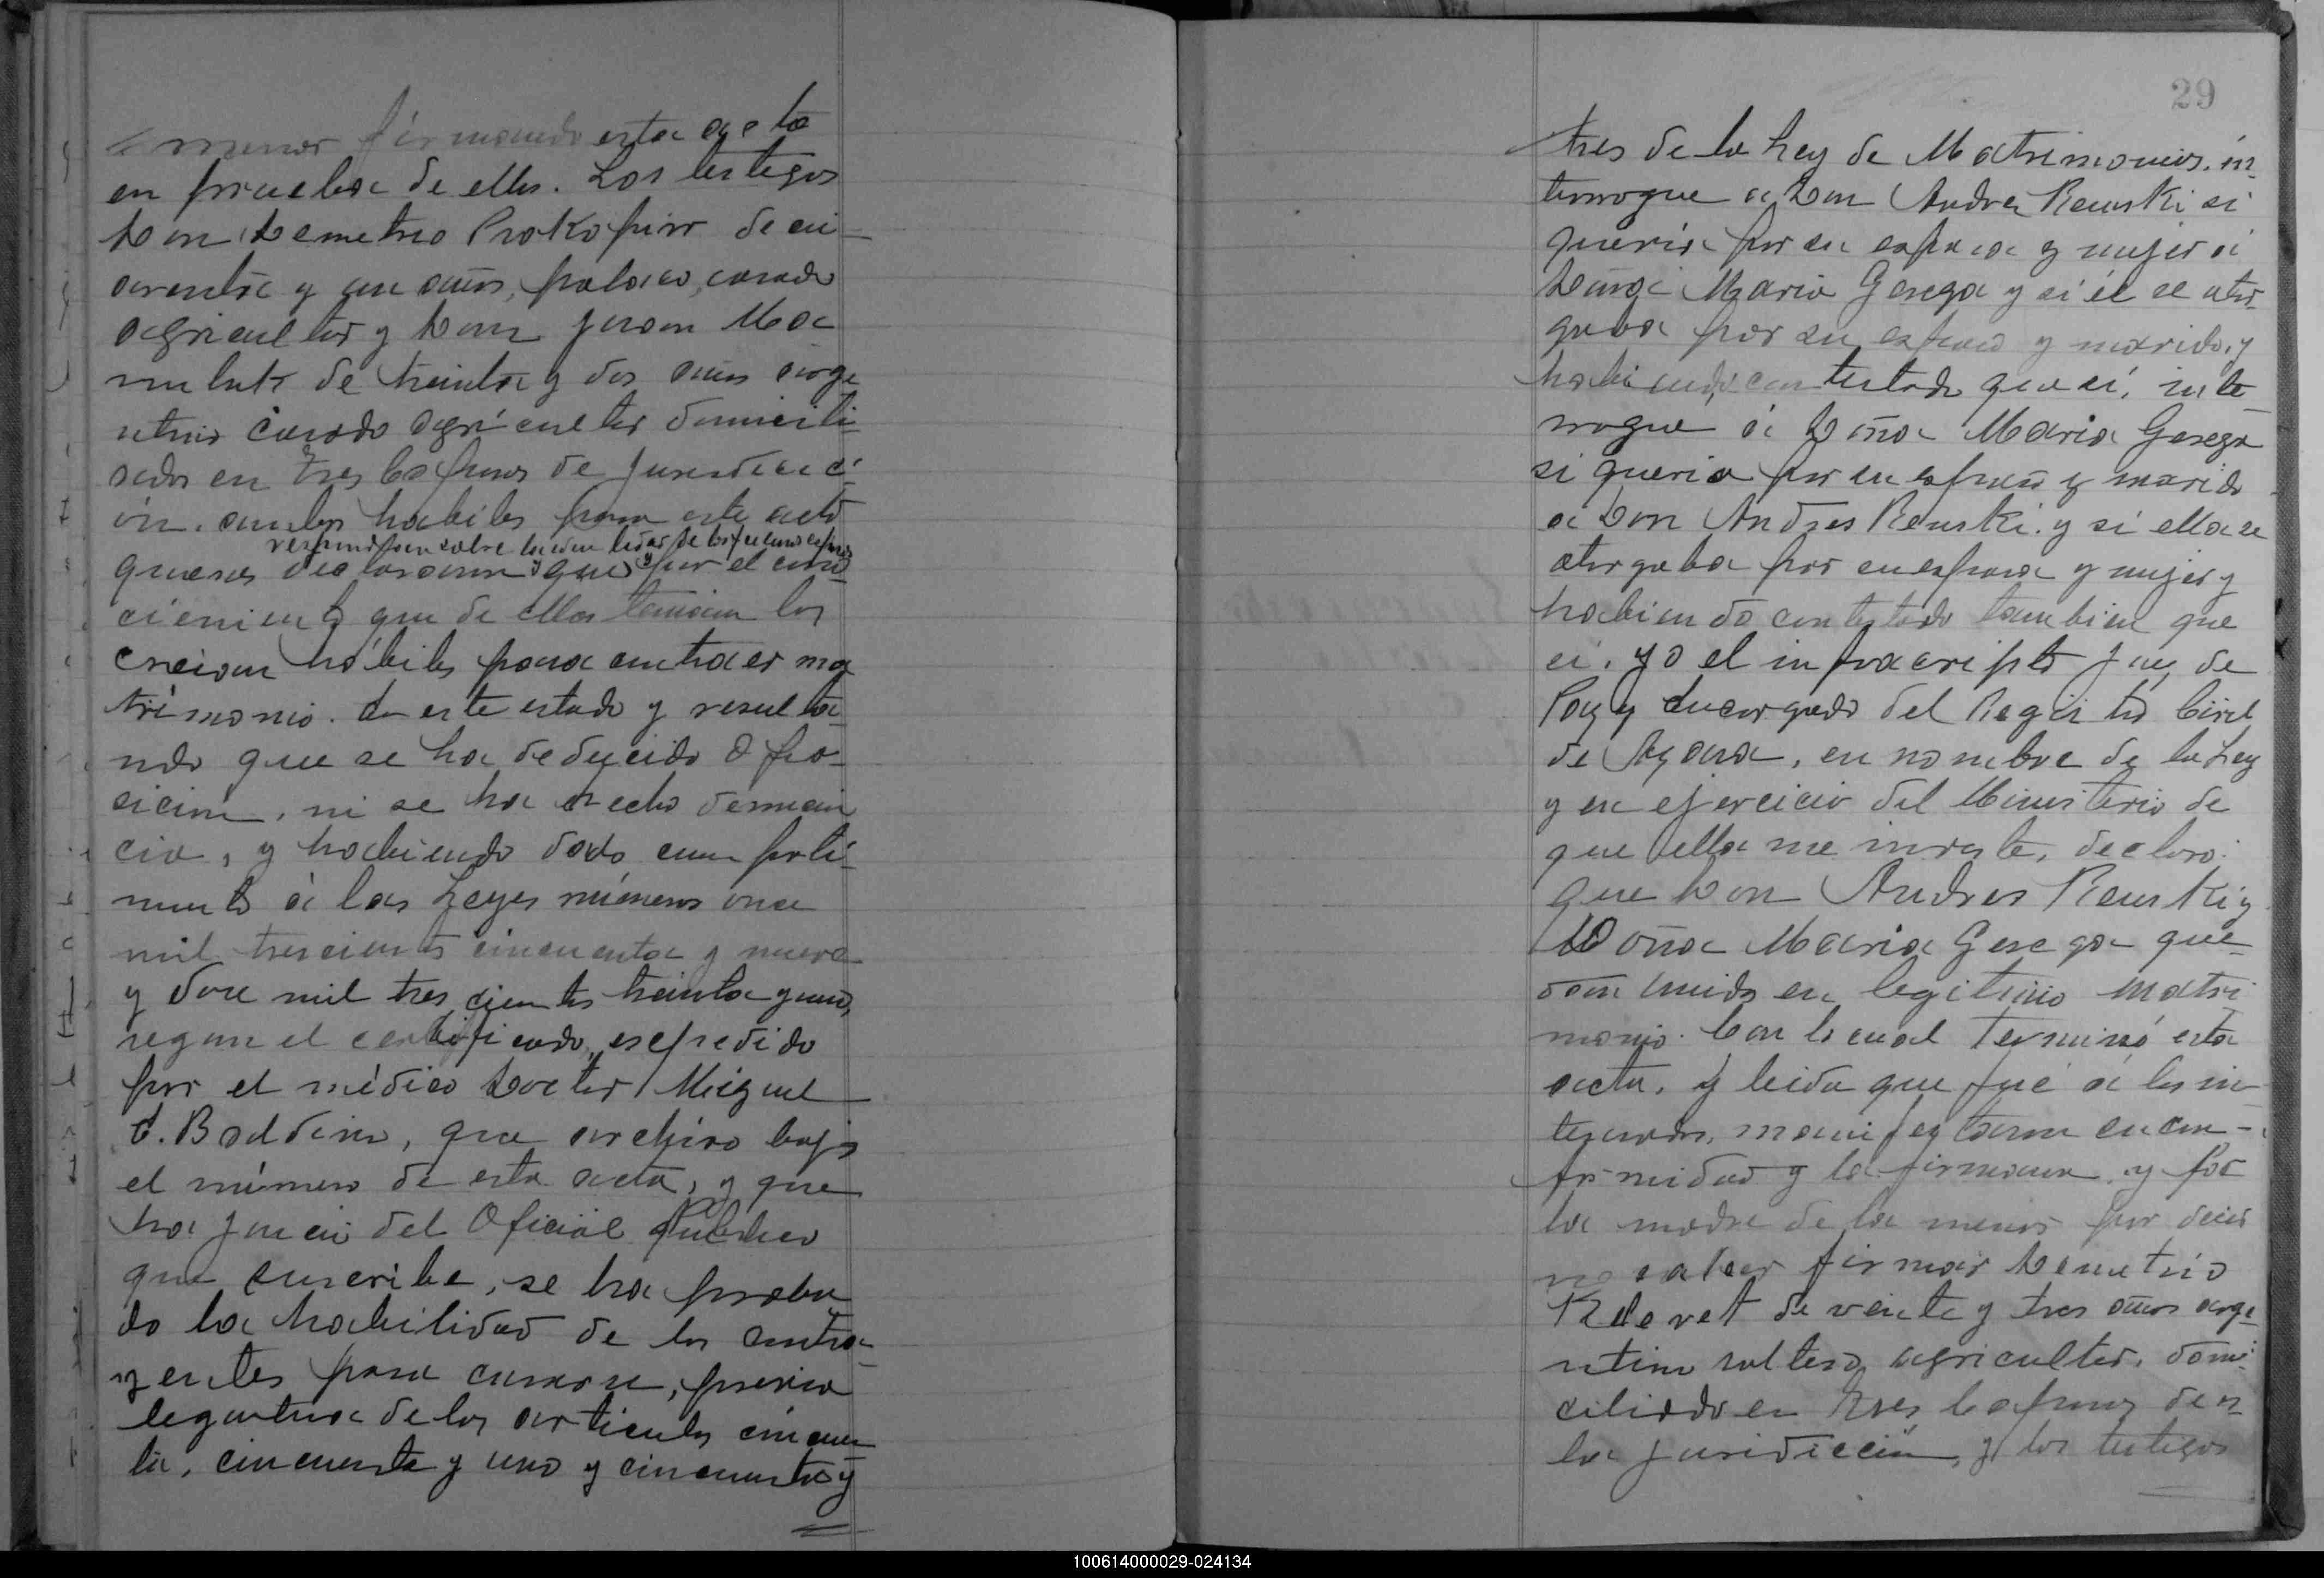 menor firmando esta acta
en prueba de ello. Los testigos
Don Demetrio Prokopiw de cu-
arenta y un años, polaco, casado
agricultor y Don Juan Ma
nulak de treinta y dos años arge
ntino casado agricultor domicili-
ados en Tres Capones de jurisdicci-
ón. ambos habiles para este acto
respondian sobre la identidad de los futuros esposos
quienes declararon que y por el cono-
cimiento que de ellos tenian los
creian hábiles para contraer ma
trimonio. En este estado y resulta-
ndo que se ha deducido opo-
sicion, ni se ha hecho denun
cia, y habiendo dado cumpli-
miento á las Leyes números once
mil trescientos cincuenta y nueve
y doce mil tres cientos treinta y uno,
segun el certificado expedido
por el médico Doctor Miguel
C. Baldini, que archivo bajo
el número de esta acta, y que
ha juicio del Oficial Público
que suscribe, se ha proba
do la habilidad de los contra-
yentes para casarse, previa
lectura de los articulos cincuen
ta, cincuenta y uno y cincuenta y
29
tres de la Ley de Matrimonios, in-
terrogue a Don Andres Rewski si
queria por su esposa y mujer á
Doña Maria Gerega y si él se otor-
gaba por su esposo y marido, y
habiendo contestado que sí, inte-
rrogué á Doña Maria Gerega
si queria por su esposo y marido
a Don Andres Rewski y si ella se
otorgaba por su esposa y mujer y
habiendo contestado tambien que
si. yo el infrascripto Juez de
Paz y Encargado del Registro Civil
de Azara, en nombre de la Ley
y en ejercicio del Ministerio de
que ella me inviste, declaro:
que Don Andres Rewski y
Doña Maria Gerega que-
dan unidos en legitimo matri
monio. Con lo cual terminó esta
acta, y leida que fué á los in-
teresados, manifestaron su con-
formidad y la firmaron, y por
la madre de la menor por decir
no saber firmar Demetrio
de veinte y tres años arge-
ntino soltero, agricultor, domi-
ciliado en Tres Capones de es
la jurisdicción, y los testigos
100614000029-024134